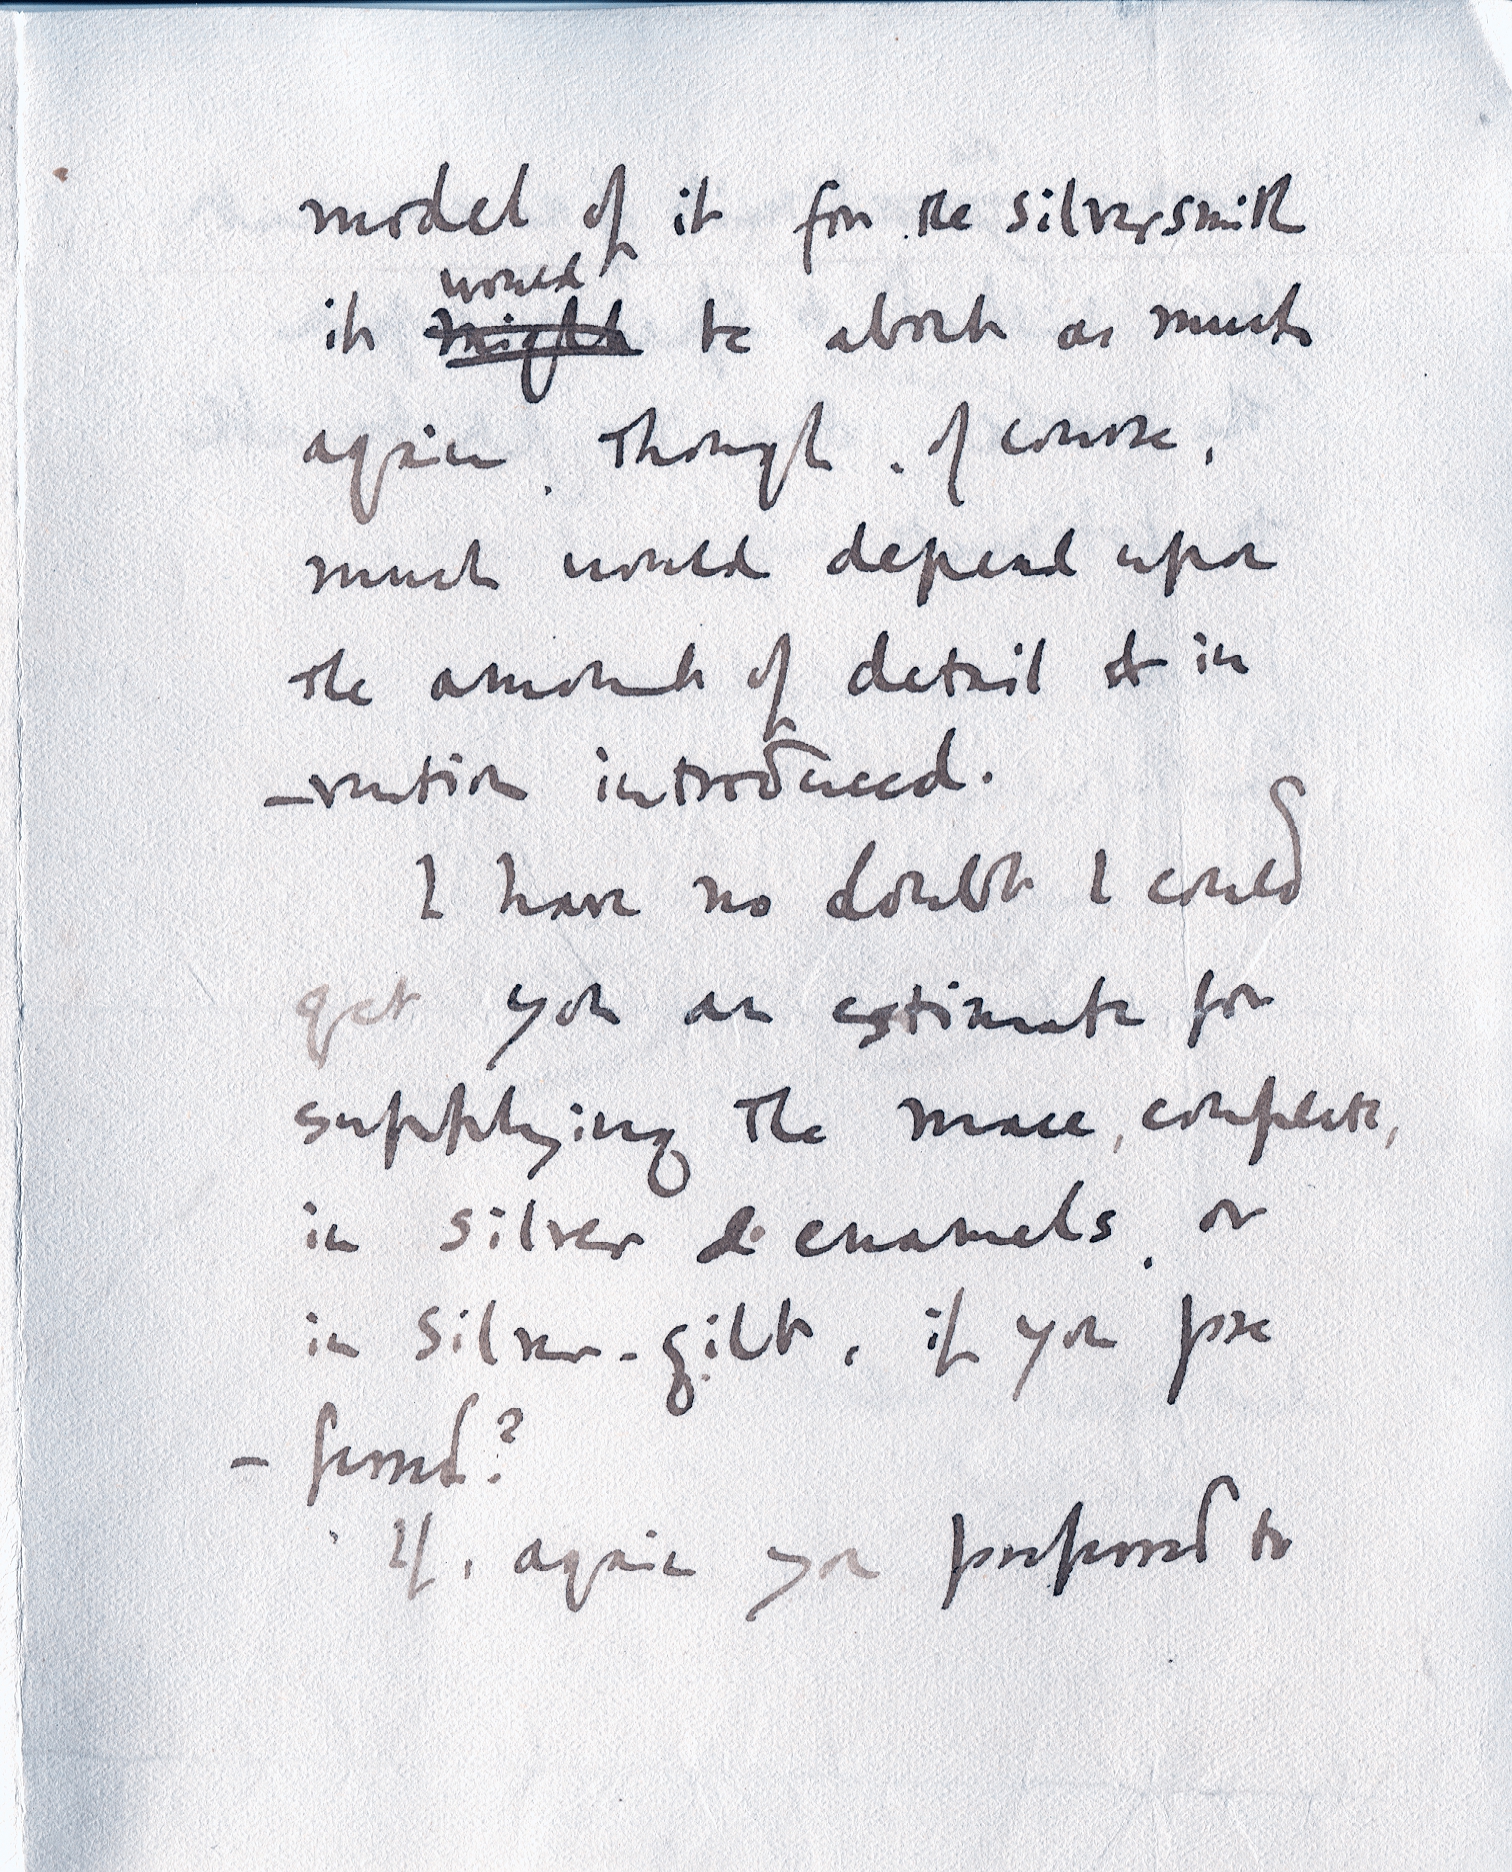 model of it for the silversmith
would
it might be about as much
again, though, of course,
much would depend upon
the amount of detail & in
-vention introduced.
I have no doubt I could
get you an estimate for
supplying the mace, complete,
in silver & enamels, or
in silver-gilt, if you pre
-ferred?
If, again you preferred to